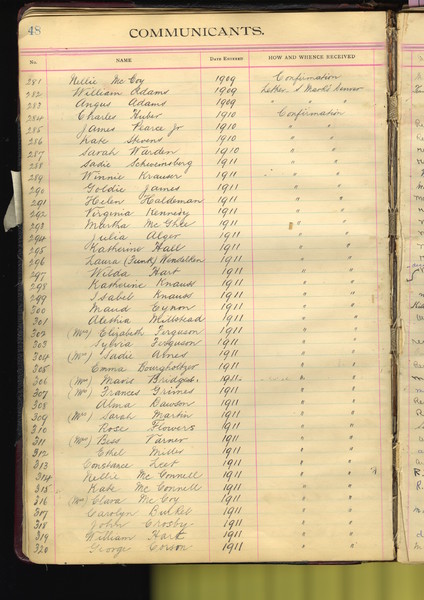 48
COMMUNICANTS.
No. NAME DATE ENTERED HOW AND WHENCE RECEIVED
281 Nellie McCoy 1909 Confirmation
282 William Adams 1909 Letter, St Mark's Denver
283 Angus Adams 1909 " " "
284 Charles Huber 1910 Confirmation
285 James Pearce Jr 1910 " "
286 Kate Stevens 1910 " "
287 Sarah Warden 1910 " "
288 Sadie 1911 " "
289 Winnie Krauser 1911 " "
290 Goldie James 1911 " "
291 Helen Haldeman 1911 " "
292 Virginia Kennedy 1911 " "
293 Martha McGhee 1911 " "
294 Julia Alger 1911 " "
295 Katherine Hall 1911 " "
296 Laura (Funk) 1911 " "
297 Wilda Hart 1911 " "
298 Katherine Knauss 1911 " "
299 Isabel Knauss 1911 " "
300 Maud Eynon 1911 " "
301 Alethia Millstead 1911 " "
302 (Mrs) Elizabeth Ferguson 1911 " "
303 Sylvia Ferguson 1911 " "
304 (Mrs) Sadie Abnes 1911 " "
305 Emma Bourgholtzer 1911 " "
306 (Mrs) Bridges. 1911 " "
307 (Mrs) Frances Grimes 1911 " "
308 Alma Dawson 1911 " "
309 (Mrs) Sarah Martin 1911 " "
310 Rose Flowers 1911 " "
311 (Mrs) Bess Varner 1911 " "
312 Ethel Miller 1911 " "
313 Constance Leet 1911 " "
314 Nellie McConnell 1911 " "
315 Kate McConnell 1911 " "
316 (Mrs) Clara McCoy 1911 " "
317 Carolyn 1911 " "
318 John Crosby 1911 " "
319 William Hart 1911 " "
320 George Corson 1911 " "